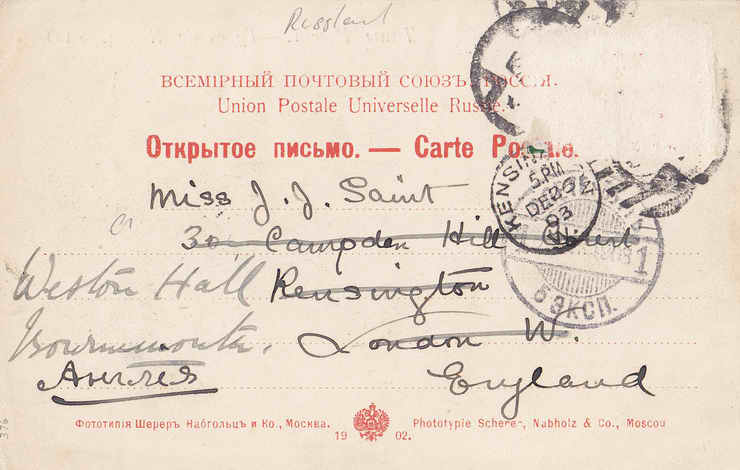 Russland
ВСЕМІРНЫЙ ПОЧТОВЫЙ СОЮЗЪ. РОССІЯ.
Union Postale Universelle Russie.
Открытое письмо. — Carte Postale.
Miss J. J. Saint
30 Campden Hill Court
Weston Hall Kensington
Bournemouth. London W.
Англія England
KENSINGTON W.
5.PM
DE 26
03
1
6 ЭКСП.
Фототипія Шереръ Набгольцъ и Ко., Москва. Phototypie Scherer, Nabholz & Co., Moscou
19 02.
376